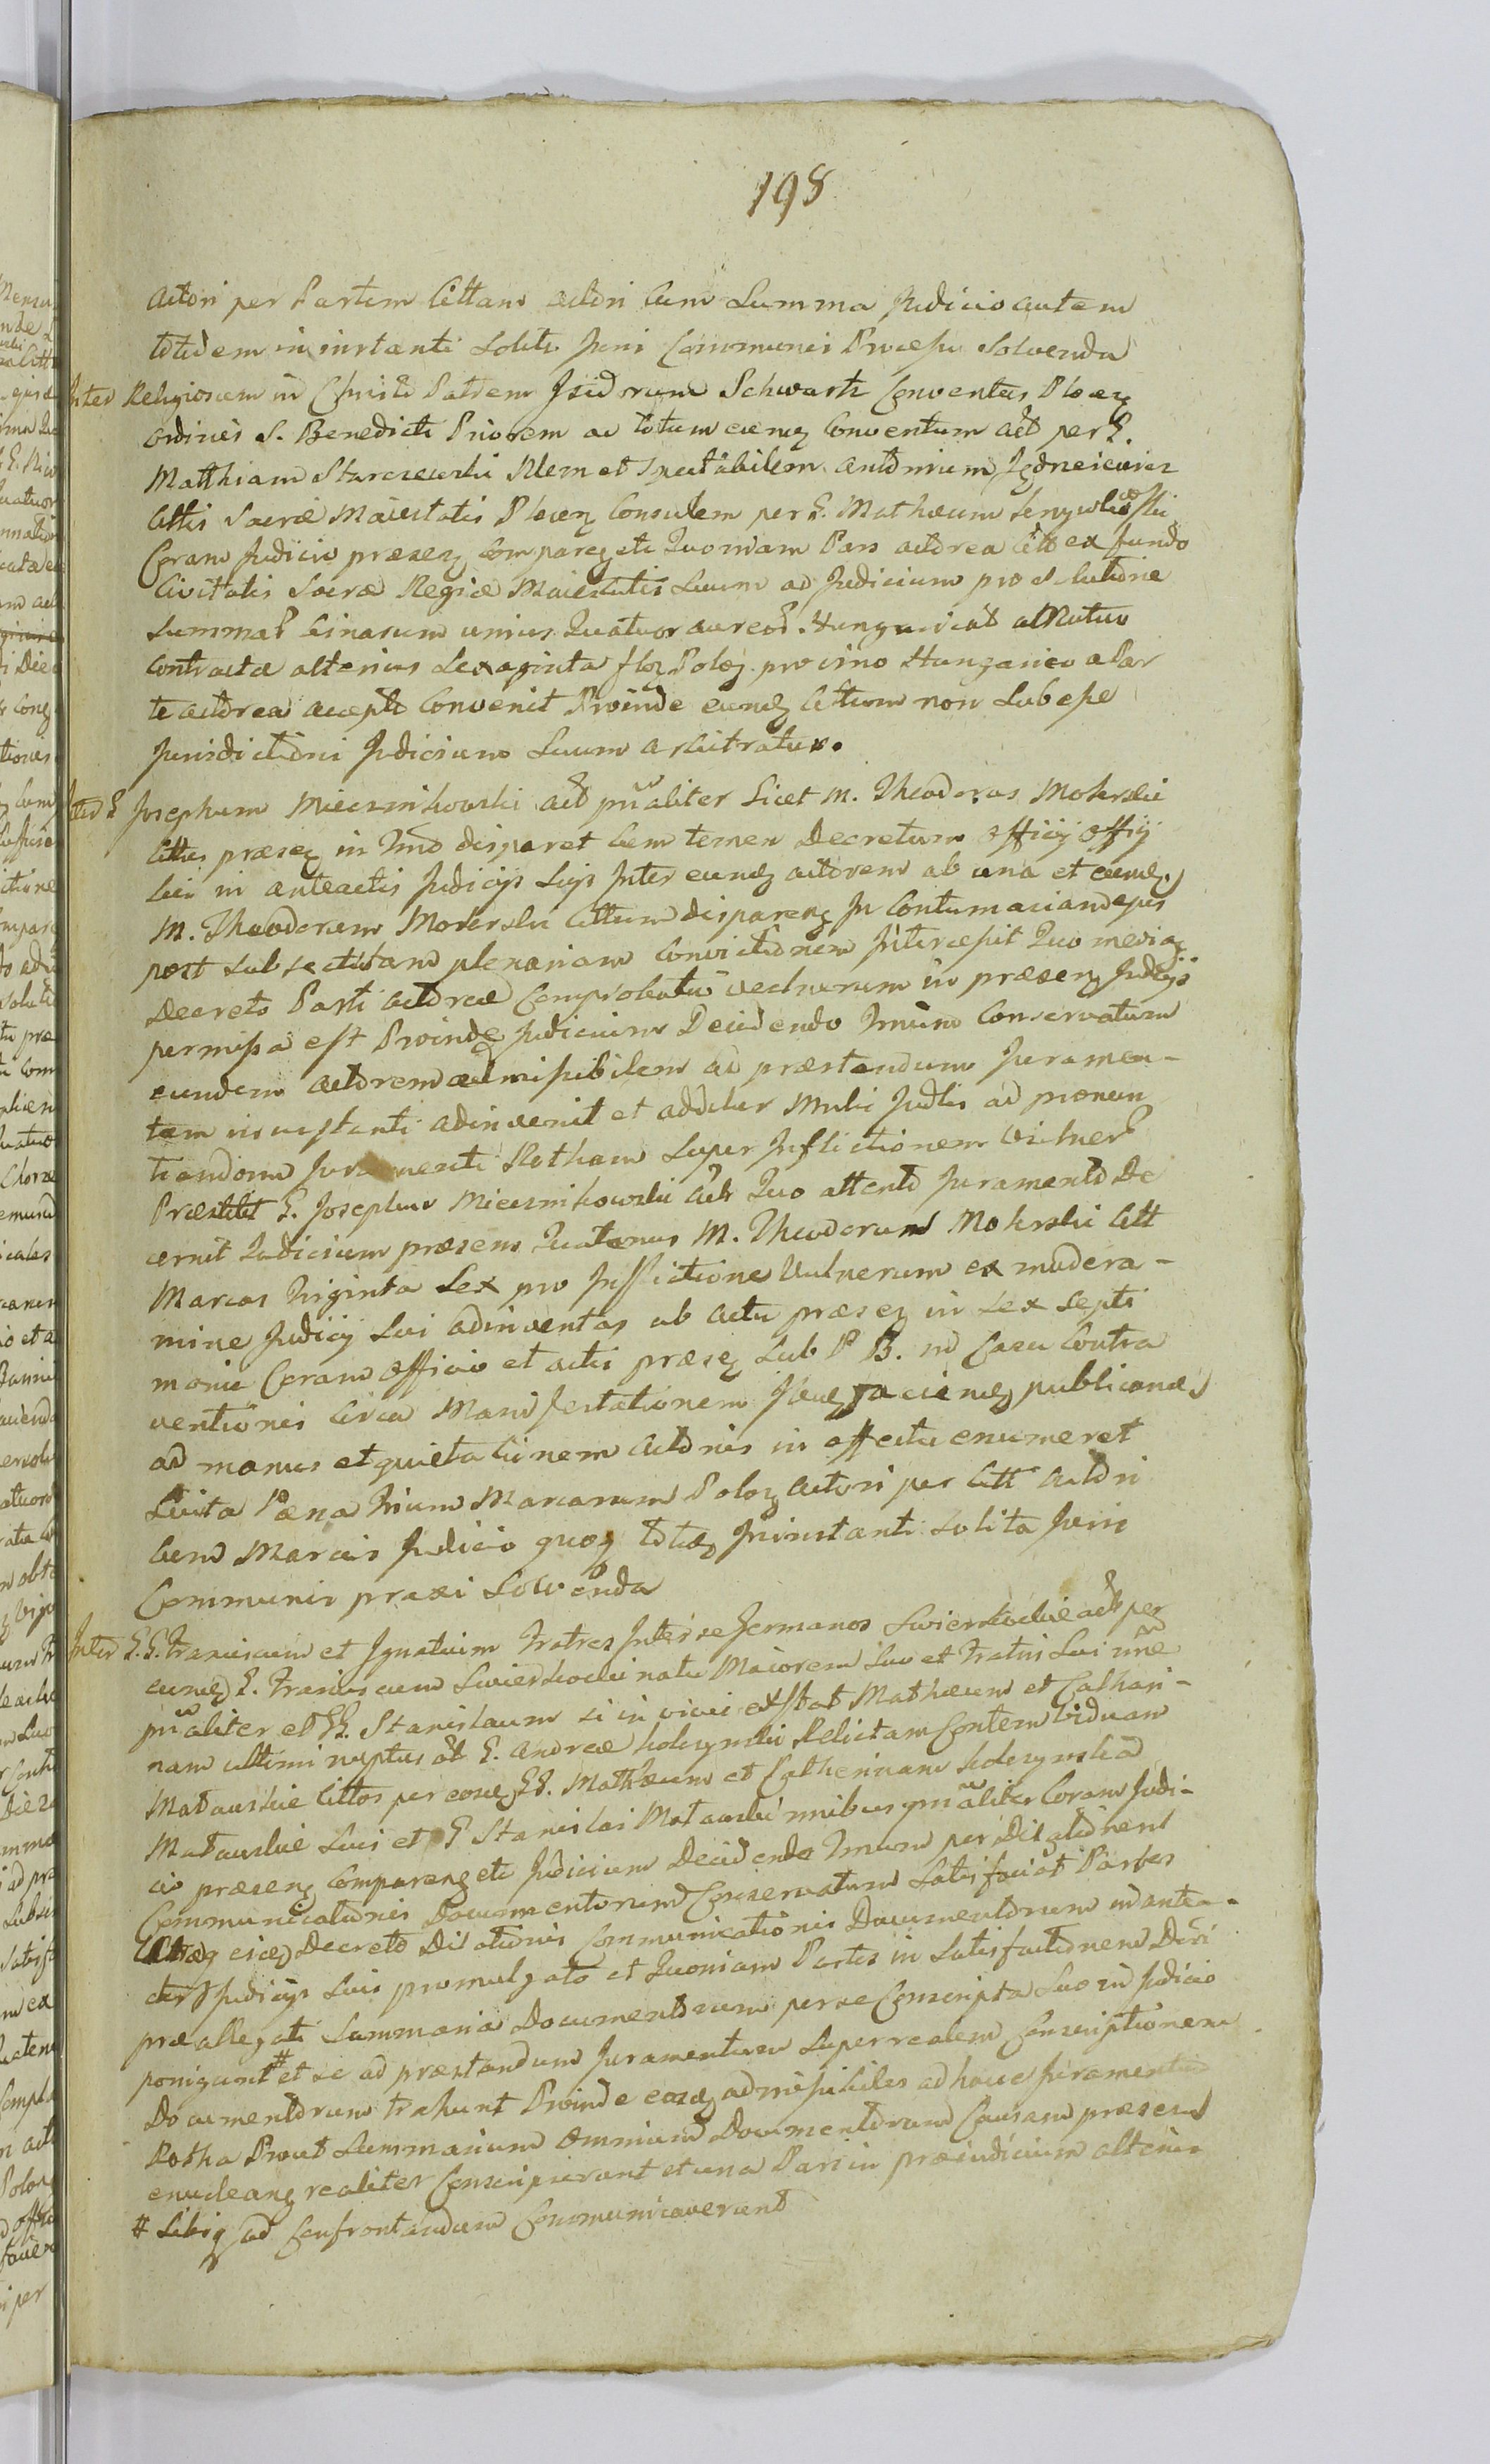 198
Actori per Partem Cittam actori cum Summa Judicio autem
totidem in instanti solita Juris Communis Praxi solvenda
Inter Religiosum in Christo Patrem Isidorum Schwartz Conventus Plocen
Ordinis S. Benedicti Priorem ac totum eunq Conventum act per G.
Matthiam Starczewski Nlem et Spectabilem Antonium
Cittis Sacræ Maiestatis Plocen Consulem per G. Mathæum
Coram Judicio præsen Comparen etc Quoniam Pars actorea Citt ex fundo
Civitatis Sacræ Regiæ Maiestatis Suum ad Judicium pro solutione
Summar binarum unius Quatuor aureor. Hungarical
Contractæ alterius Sexaginta flor Polog pro vino Hungarico a Par
te actorea accepto Convenit Proinde eunq Cittum non Subesse
Jurisdictioni Judicium Suum arbitratur.
Inter G Josephum Miecznikowski act pnaliter Licet M. Theodorus Mokrski
Cittus præseq in Tmo disparet Cum tamen Decretum officij
sui in anteactis Judicijs Suis Inter eunq actorem ab una et eunq
M. Theodorum Mokrski Cittum disparenq In Contumaciam
post Subsecutam plenariam Convictionem Intercessit Quo mediaq
Decreto Parti actoreæ Comprobatio vulnerum in præsenq Judijs
permissa est Proindeq Judicium Decidendo Tmum Conservatum
eundem actorem admissibilem ad præstandum Juramen-
tum in instanti adinvenit et additur Mnli Judlis ad pronun
tiandam Juramenti Rotham Super Inflictionem Vulner
Præstitit G. Josephus Miecznikowski act Quo attento Juramento De
cernit Judicium præsens Quatenus M. Theodorum Mokrski Citt
Marcas Triginta Sex pro Inflictione Vulnerum ex modera-
mine Judicij Sui adinventas ab actu præseq in sex Septi
manis Coram officio et actis præseq Sub P B. in Casu Contra
ventionis Circa Manifestationem publicanq
ad manus et quietationem actoris in effectu enumeret
Luita Pæna Trium Marcarum Polog actori per Citt actori
Cum Marcis Judicio quoq totiq Ininstanti solita Juris
Communis praxi solvenda
Inter G.G. Franciscum et Ignatium Fratres Inter se Germanos Swierkockie act per
eunq G. Franciscum Swierkocki natu Maiorem Suo et Fratris Sui nne
pnaliter et GG. Stanislaum si in vivis exstat Mathæum et Cathari-
nam ultimi nuptus olt G. Andreæ Relictam Contem viduam
Matauskie Cittos per eosq GG. Mathæum et Catherinam
Matauskie Suis et G Stanislai Matauski nnibus pnaliter Coram Judi-
cio præsenq Comparenq etc Judicium Decidendo Tmum per Dilationem
Communicationis Documentorum Conservatum Satisfaciat Partes
eiq Decreto Dilationis Communicationis Documentorum in antea-
ctis Judicijs Suis promulgato et Quoniam Partes in Satisfactionem
præallegati Summaria Documentorum per se Conscripta Suo in Judicio
porrigunt # et se ad præstandum Juramentum Super realem Conscriptionem
Documentorum trahunt Proinde easq admissibiles ad hauc Juramenti
Rotha Prout Summarium Omnium Documentorum Causam præsens
enucleanq realiter Conscripserunt et una Pars in præiudicium alterius
# Sibiq ad Confrontandum Communicaverunt